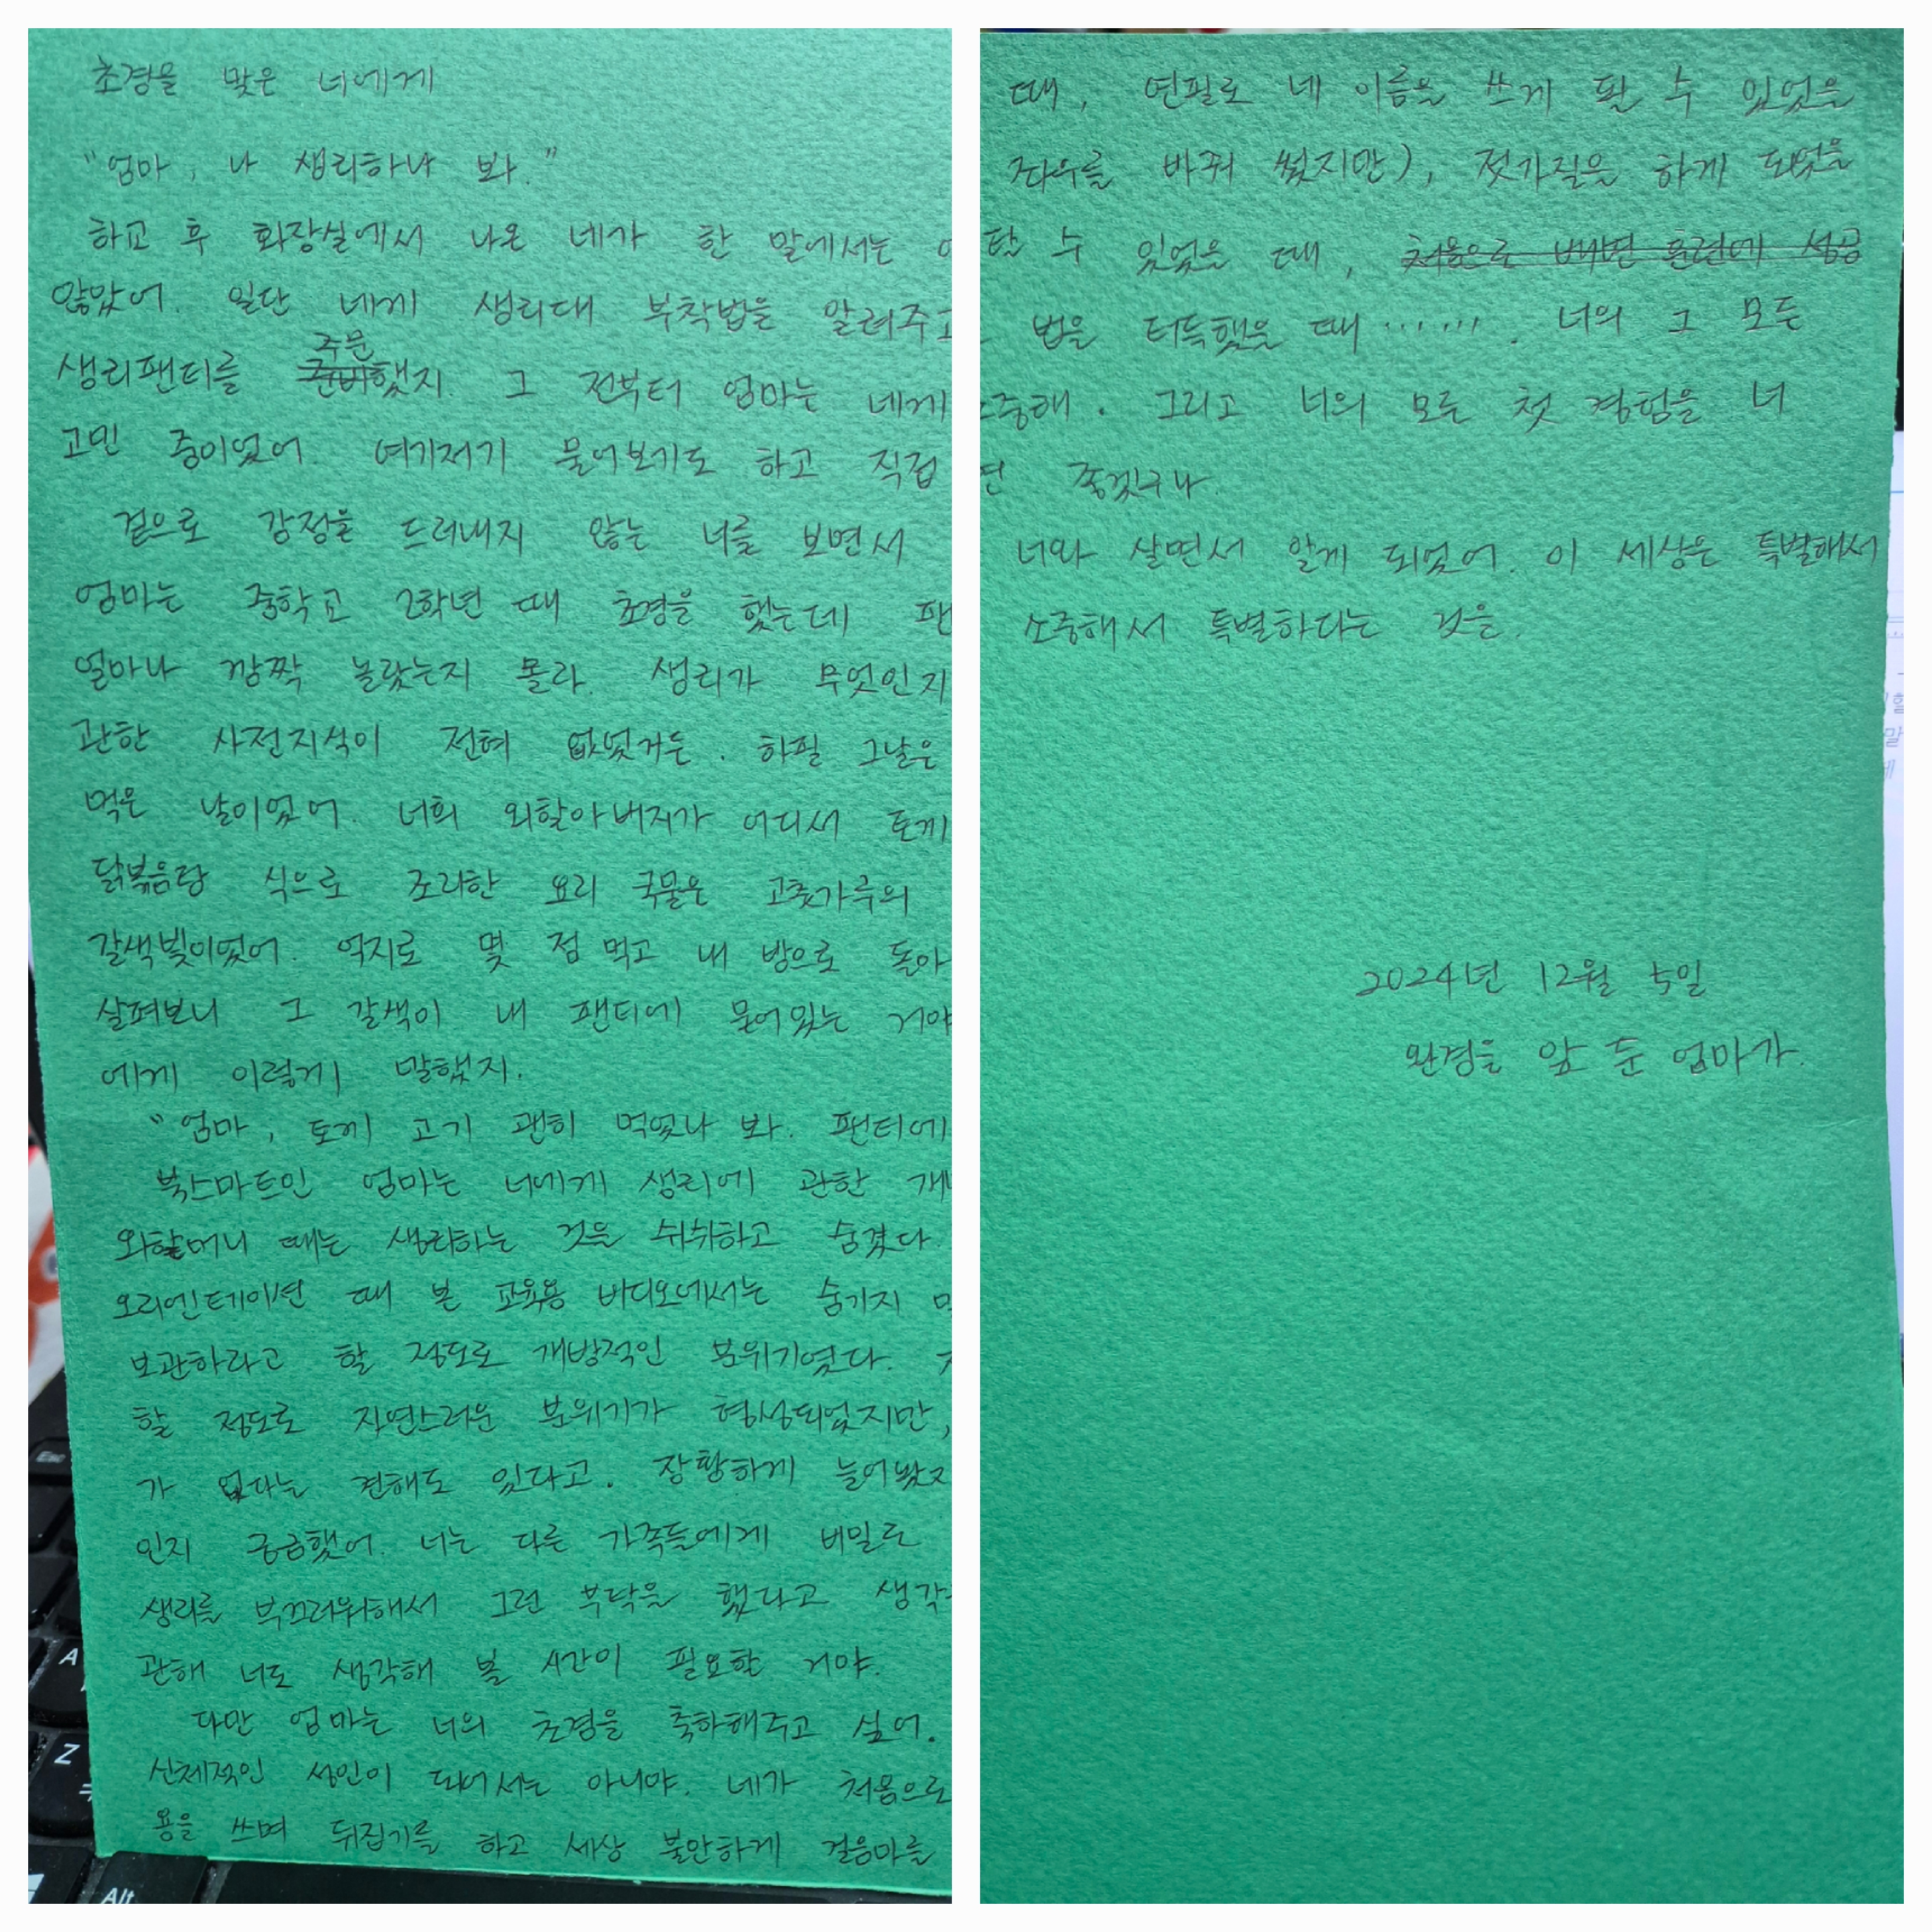 초경을 맞은 너에게
"엄마, 나 생리하나 봐."
하교 후 화장실에서 나온 네가 한 말에서는
않았어. 일단 네게 생리대 부착법을 알려주고
생리팬티를 준비 주문했지. 그 전부터 엄마는 네게
고민 중이었어. 여기저기 물어보기도 하고 직접
겉으로 감정을 드러내지 않는 너를 보면서
엄마는 중학교 2학년 때 초경을 했는데 팬
얼마나 깜짝 놀랐는지 몰라. 생리가 무엇인지
관한 사전지식이 전혀 없었거든. 하필 그날은
먹은 날이었어. 너희 외할아버지가 어디서 토끼
닭볶음탕 식으로 조리한 요리 국물은 고춧가루의
갈색빛이었어. 억지로 몇 점 먹고 내 방으로 돌아
살펴보니 그 갈색이 내 팬티에 묻어있는 거야
에게 이렇게 말했지.
"엄마, 토끼 고기 괜히 먹었나 봐. 팬티에
북스마트인 엄마는 너에게 생리에 관한
외할머니 때는 생리하는 것을 쉬쉬하고 숨겼다.
오리엔테이션 때 본 교육용 비디오에서는 숨기지
보관하라고 할 정도로 개방적인 분위기였다.
할 정도로 자연스러운 분위기가 형성되었지만,
가 없다는 견해도 있다고. 장황하게 늘어놨지
인지 궁금했어. 너는 다른 가족들에게 비밀로
생리를 부끄러워해서 그런 부탁을 했다고 생각
관해 너도 생각해 볼 시간이 필요한 거야.
다만 엄마는 너의 초경을 축하해주고 싶어.
신체적인 성인이 되어서는 아니야. 네가 처음으로
용을 쓰며 뒤집기를 하고 세상 불안하게 걸음마를
때, 연필로 네 이름을 쓰게 될 수 있었을
좌우를 바꿔 썼지만), 젓가질을 하게 되었을
탈 수 있었을 때, 처음으로 배변 훈련에 성공
법을 터득했을 때 ‥‥‥. 너의 그 모든
소중해. 그리고 너의 모든 첫 경험을 너
면 좋겠구나.
너와 살면서 알게 되었어. 이 세상은 특별해서
소중해서 특별하다는 것을.
2024년 12월 5일
완경을 앞 둔 엄마가.